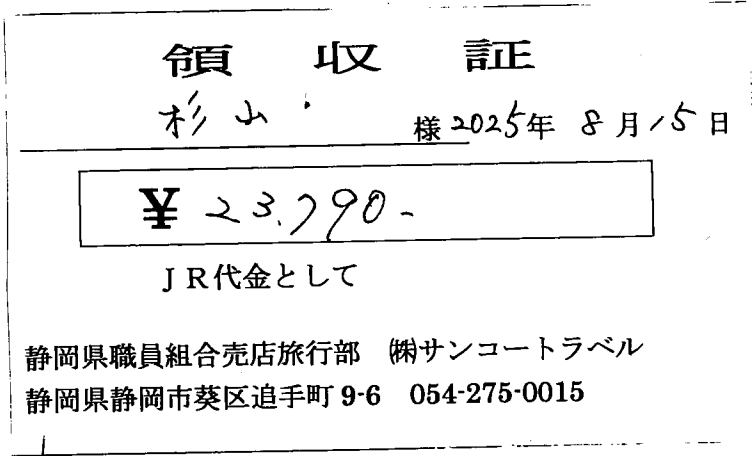 領収証
杉山 様 2025年 8月15日
¥ 23,790-
JR代金として
静岡県職員組合売店旅行部 ㈱サンコートラベル
静岡県静岡市葵区追手町9-6 054-275-0015